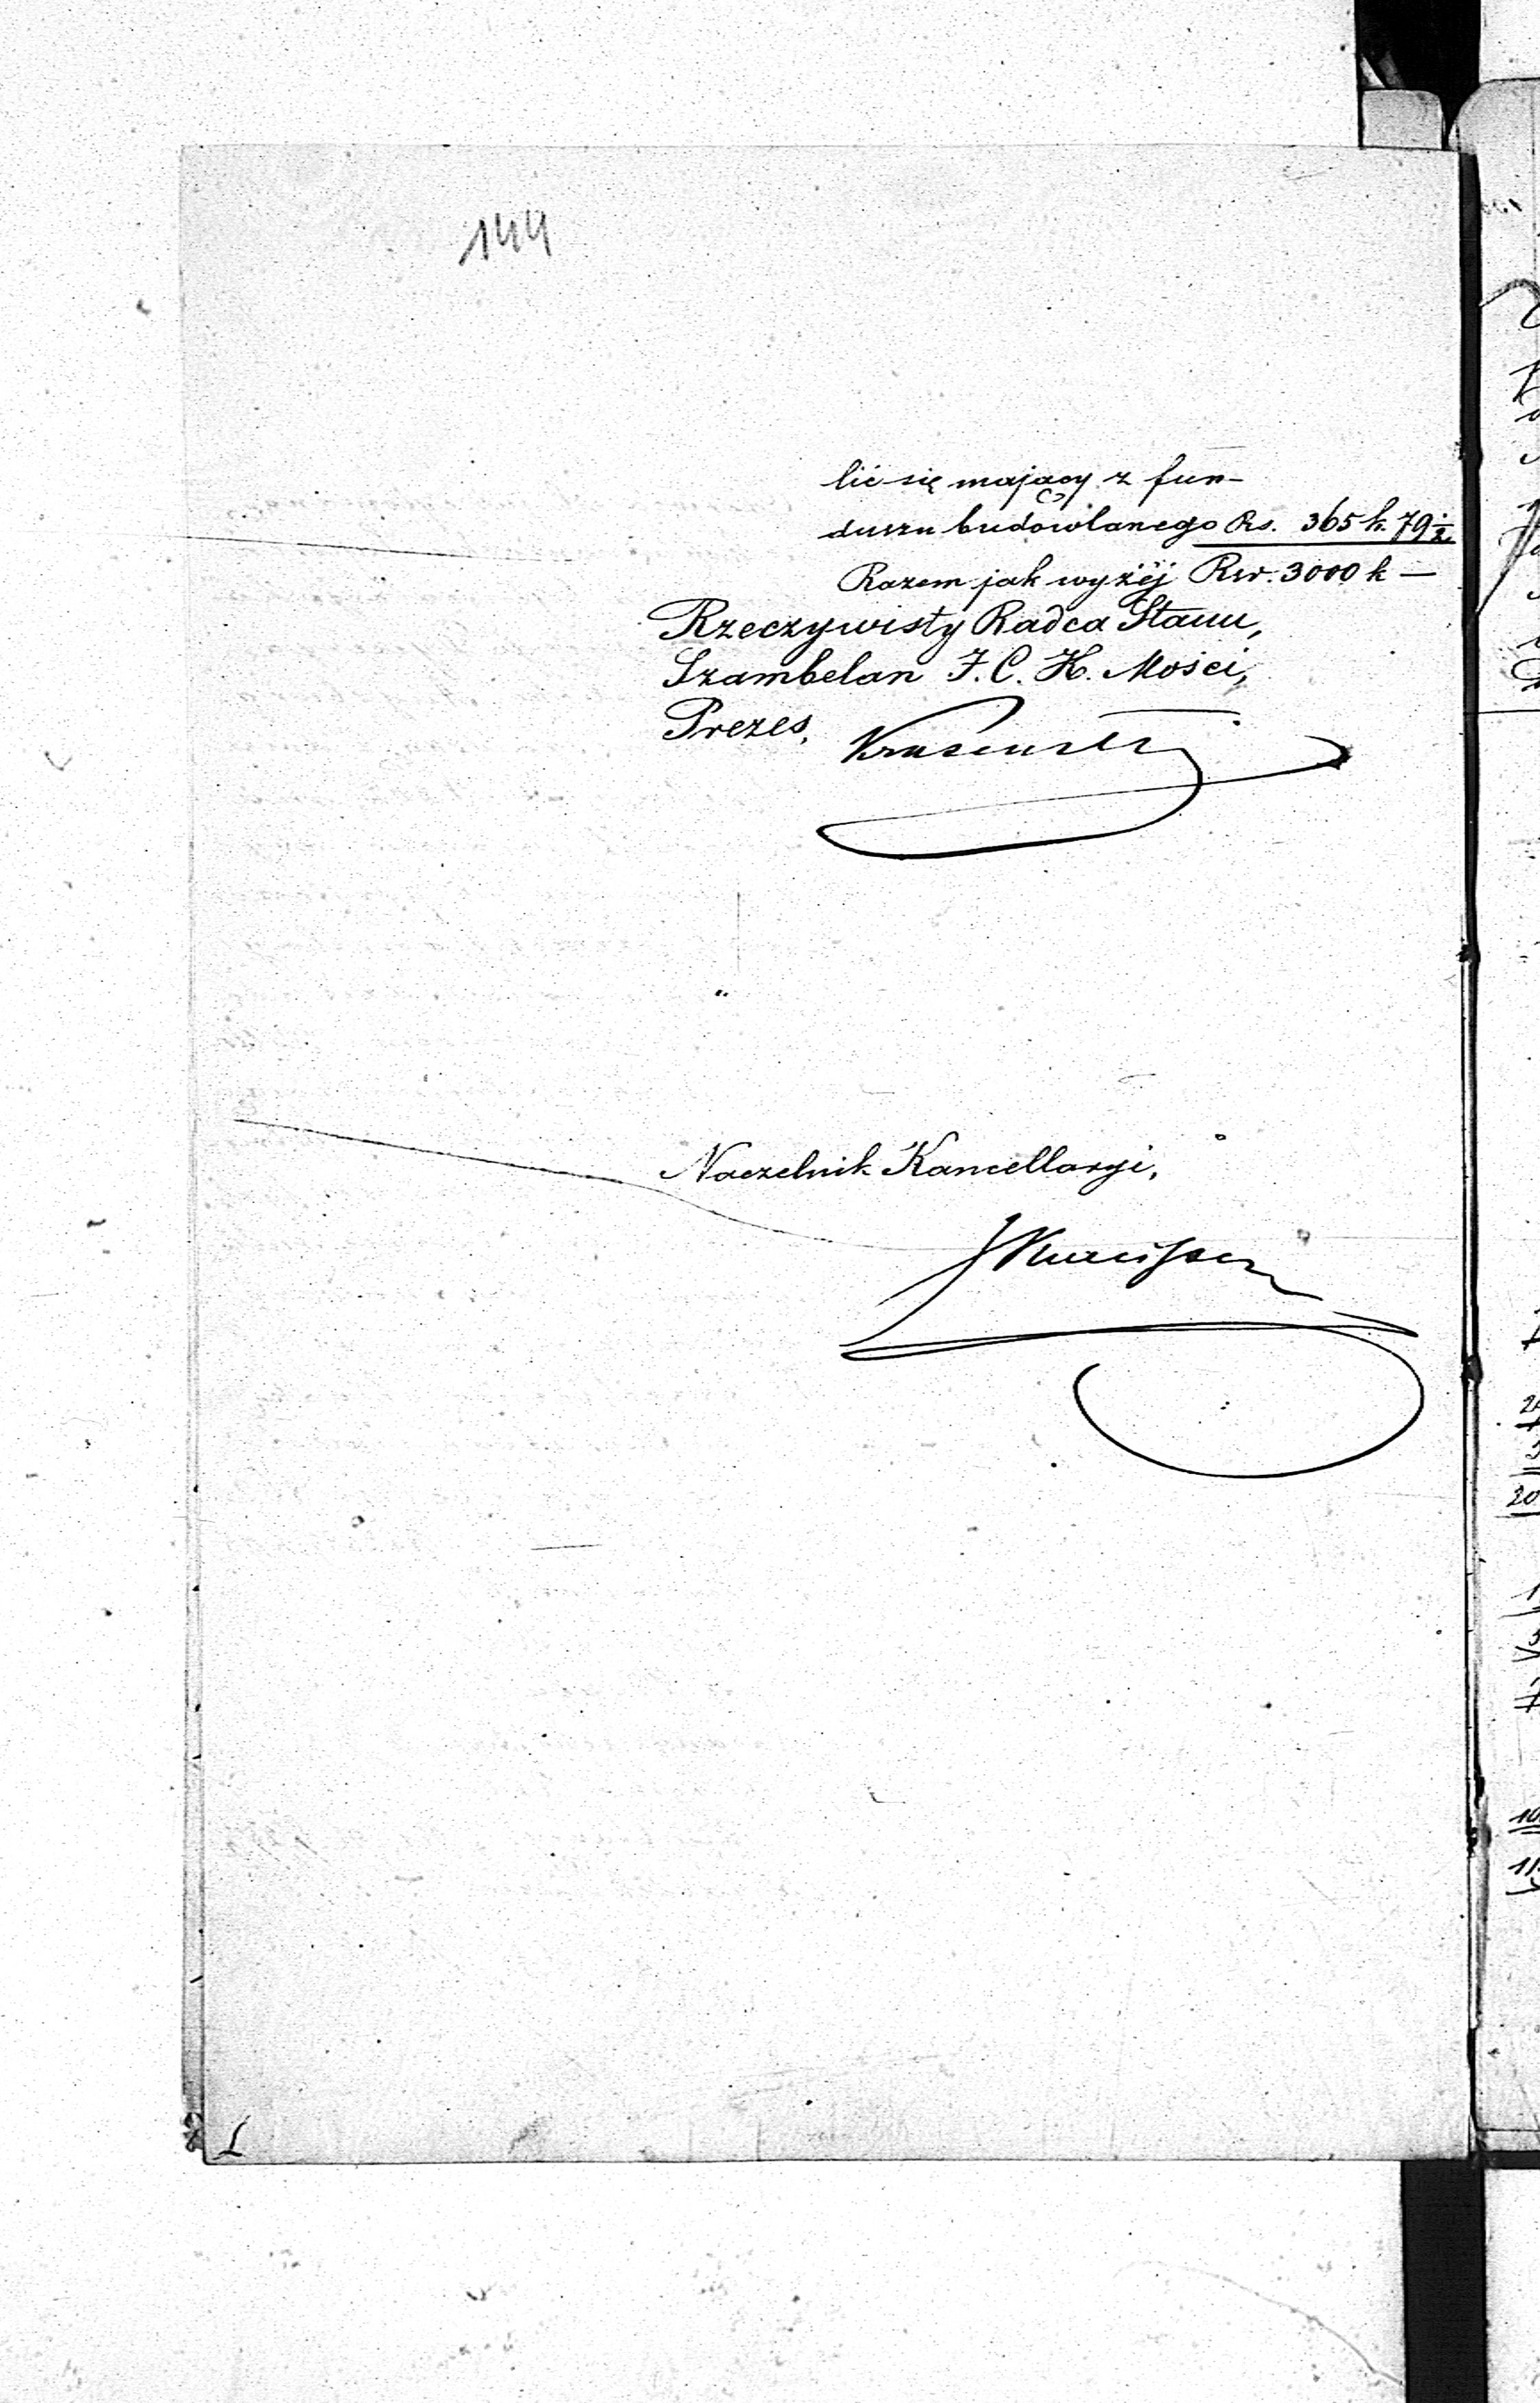 144
lić się mający z fun-
duszu budowlanego Rs. 365 k. 79½
Razem jak wyżéj Rsr. 3000 k —
Rzeczywisty Radca Stanu,
Szambelan J. C. K. Mości,
Prezes,
Naczelnik Kancellaryi,